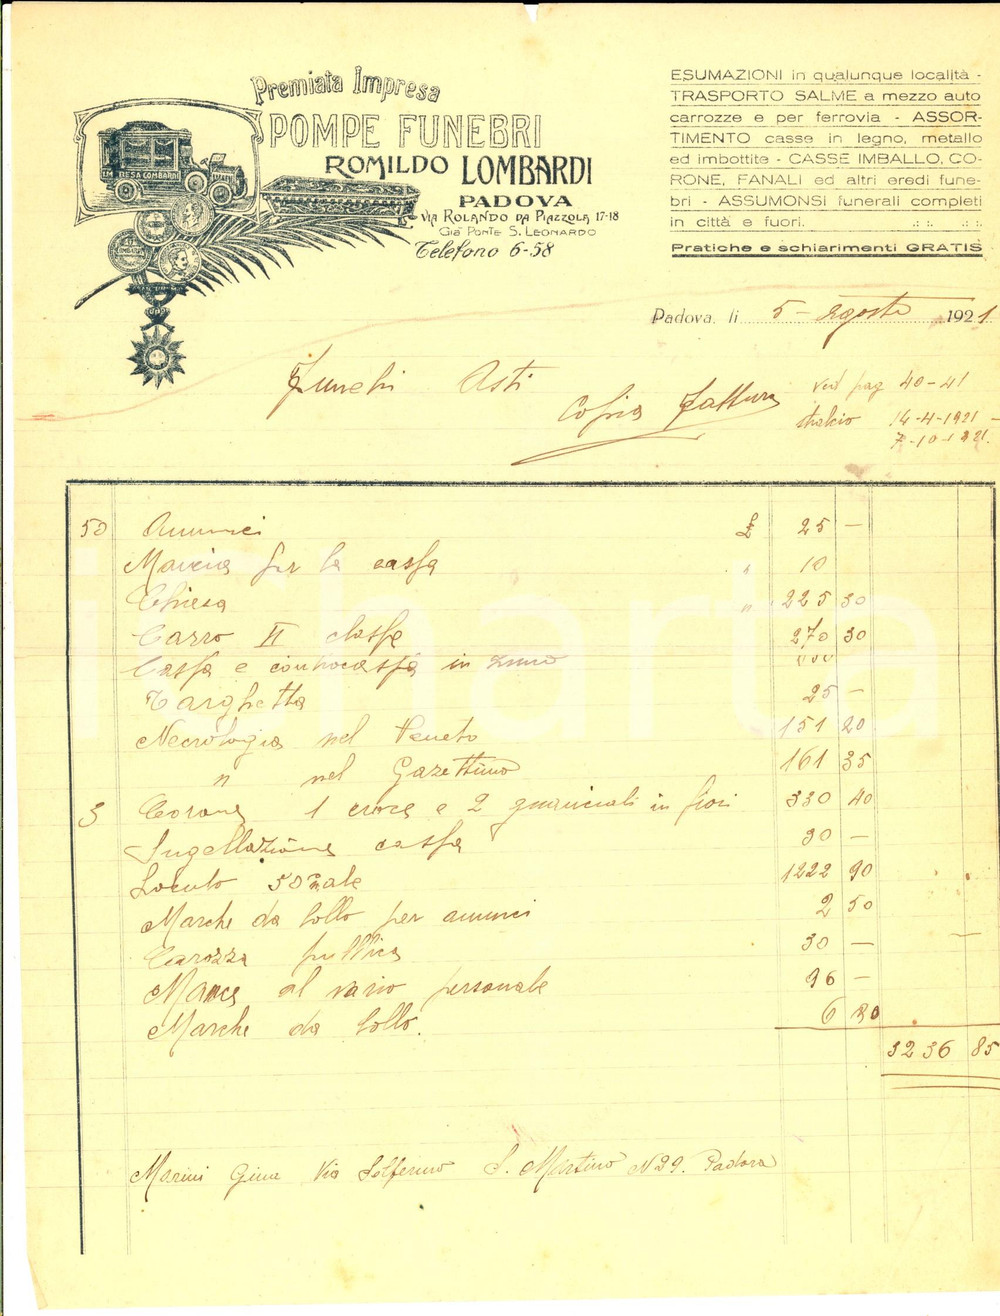 Premiata Impresa
POMPE FUNEBRI
ROMILDO LOMBARDI
PADOVA
VIA ROLANDO DA PIAZZOLA 17-18
GIÀ PONTE S. LEONARDO
Telefono 6-58
IMPRESA COMBARDI
ESUMAZIONI in qualunque località -
TRASPORTO SALME a mezzo auto
carrozze e per ferrovia - ASSOR-
TIMENTO casse in legno, metallo
ed imbottite - CASSE IMBALLO, CO-
RONE, FANALI ed altri eredi fune-
bri - ASSUMONSI funerali completi
in città e fuori.
Pratiche e schiarimenti GRATIS
Padova, li 5 - Agosto 1921
Funebri Asti
Copia Fattura
ved pag 40-41
stralcio 14-4-1921 -
7-10-1921.
50 Annunci 25 —
Mancia per la cassa " 10
Chiesa " 225 30
Carro II classe 270 30
Cassa e controcassa in zinco
Targhetta 25 —
Necrologia nel Veneto 151 20
" nel Gazettino 161 35
3 Corone 1 croce e 2 guanciali in fiori 330 40
Sugellazione cassa 30 —
Loculo 1222 90
Marche da bollo per annunci 2 50
Carozza publica 30 —
Mance al vario personale 96 —
Marche da bollo. 6
3236 85
Marini Gina Via Solferino S. Martino N 29. Padova
iCharta